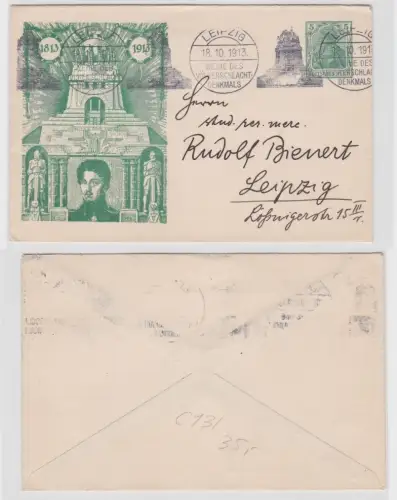 1813 1913
LEIPZIG
18.10.1913.
WEIHE DES
VÖLKERSCHLACHT-
DENKMALS
LEIPZIG
.10.191
HE DES
RSCHLAC
DENKMALS
5 5
Herrn
stud. rer. merc.
Rudolf Bienert
Leipzig
Lößnigerstr 15 III
r.
C 131
35,-